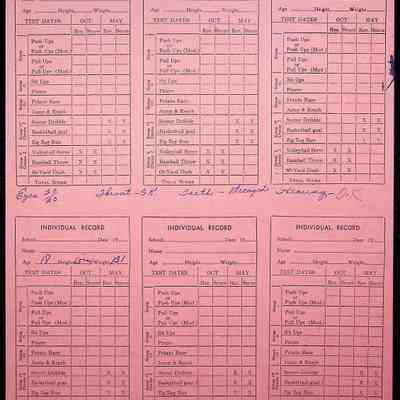 Age Height Weight Age Height Weight Age Height Weight
TEST DATES OCT MAY TEST DATES OCT MAY TEST DATES OCT MAY
Rec. Score Rec. Score Rec. Score Rec. Score Rec. Score Rec. Score
Push Ups Push Ups Push Ups
or or or
Push Ups (Mod.) Push Ups (Mod.) Push Ups (Mod.)
Pull Ups Pull Ups Pull Ups
or or or
Pull Ups (Mod.) Pull Ups (Mod.) Pull Ups (Mod.)
Sit Ups Sit Ups Sit Ups
Potato Race Potato Race Potato Race
Jump & Reach Jump & Reach Jump & Reach
Soccer Dribble X X Soccer Dribble X X Soccer Dribble X X
Basketball goal X X Basketball goal X X Basketball goal X X
Zig Zag Run X X Zig Zag Run X X Zig Zag Run X X
Volleyball Serve X X Volleyball Serve X X Volleyball Serve X X
Baseball Throw X X Baseball Throw X X Baseball Throw X X
60-Yard Dash X X 60-Yard Dash X X 60-Yard Dash X X
Total Score Total Score Total Score
Eyes 20/20 Throat - Teeth - Hearing - O.K
INDIVIDUAL RECORD INDIVIDUAL RECORD INDIVIDUAL RECORD
School Date 19 School Date 19 School Date 19
Name Name Name
Age 18 Height Weight 131 Age Height Weight Age Height Weight
TEST DATES OCT MAY TEST DATES OCT MAY TEST DATES OCT MAY
Rec. Score Rec. Score Rec. Score Rec. Score Rec. Score Rec. Score
Push Ups Push Ups Push Ups
or or or
Push Ups (Mod.) Push Ups (Mod.) Push Ups (Mod.)
Pull Ups Pull Ups Pull Ups
or or or
Pull Ups (Mod.) Pull Ups (Mod.) Pull Ups (Mod.)
Sit Ups Sit Ups Sit Ups
Potato Race Potato Race Potato Race
Jump & Reach Jump & Reach Jump & Reach
Soccer Dribble X X Soccer Dribble X X Soccer Dribble X X
Basketball goal X X Basketball goal X X Basketball goal X X
Zig Zag Run X X Zig Zag Run X X Zig Zag Run X X